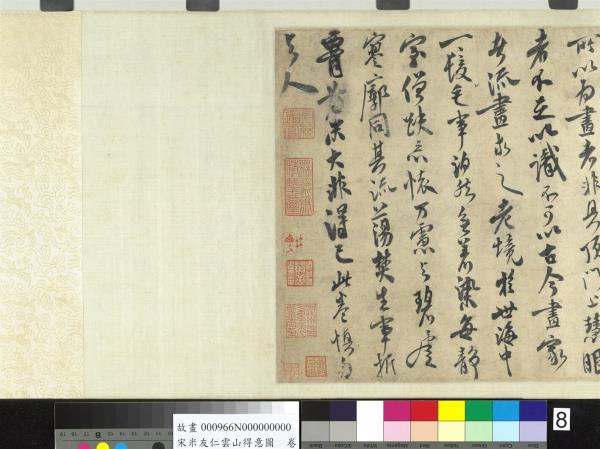 所以為畫者非具頂門上慧眼
者不足以識不可以古今畫家
者流畫求之老境於世海中
一毛髮事泊然無著染每靜
室僧趺忘懷萬慮與碧虛
寥廓同其流蕩焚生事折
腰為米大非得已此卷慎勿
與人
故畫 000966N000000000
宋米友仁雲山得意圖 卷
8